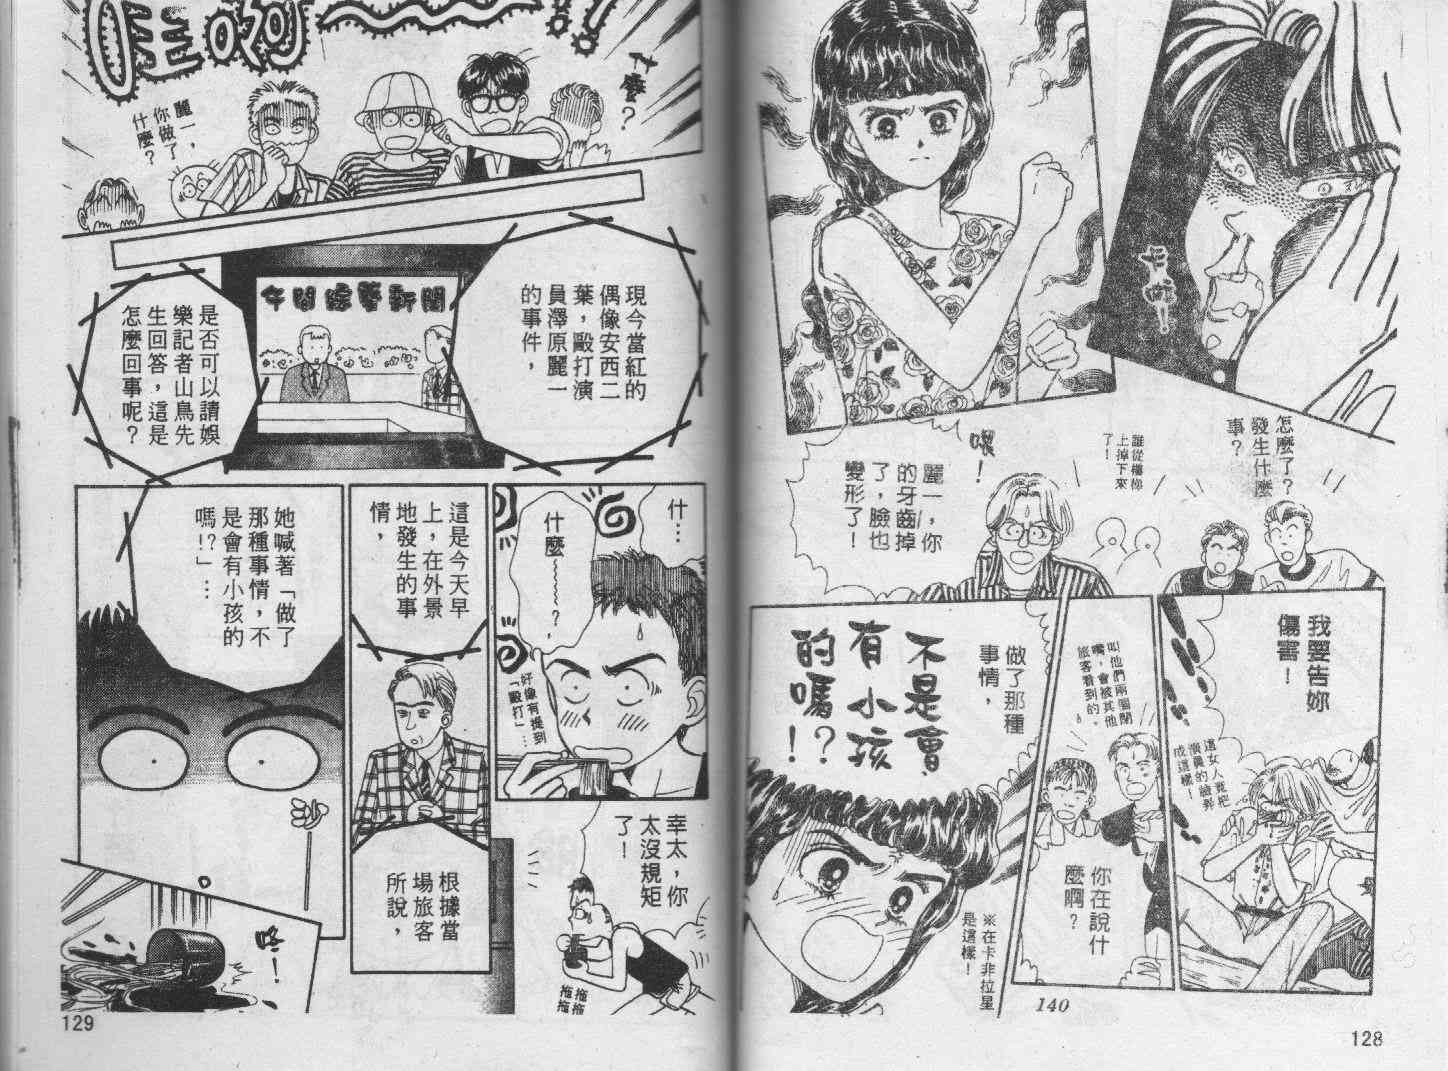 怎麼了？
發生什麼
事？
誰從樓梯
上掉下來
了！
喂！
麗一，你
的牙齒掉
了，臉也
變形了！
我要告妳
傷害！
這女人竟把
演員的臉弄
成這樣
叫他們兩個閉
嘴，會被其他
旅客看到的。
你在說什
麼啊？
做了那種
事情，
不是會
有小孩
的嗎？！
※在卡非拉星
是這樣！
140
128
哇喲～～！！
什麼？
麗一，
你做了
什麼？
現今當紅的
偶像安西二
葉，毆打演
員澤原麗一
的事件，
午間綜藝新聞
是否可以請娛
樂記者山鳥先
生回答，這是
怎麼回事呢？
什…
什麼～～～？，
好像有提到
「毆打」…
幸太，你
太沒規矩
了！
拖拖
拖拖
這是今天早
上，在外景
地發生的事
情，
根據當
場旅客
所說，
她喊著「做了
那種事情，不
是會有小孩的
嗎！？」…
咚！
129